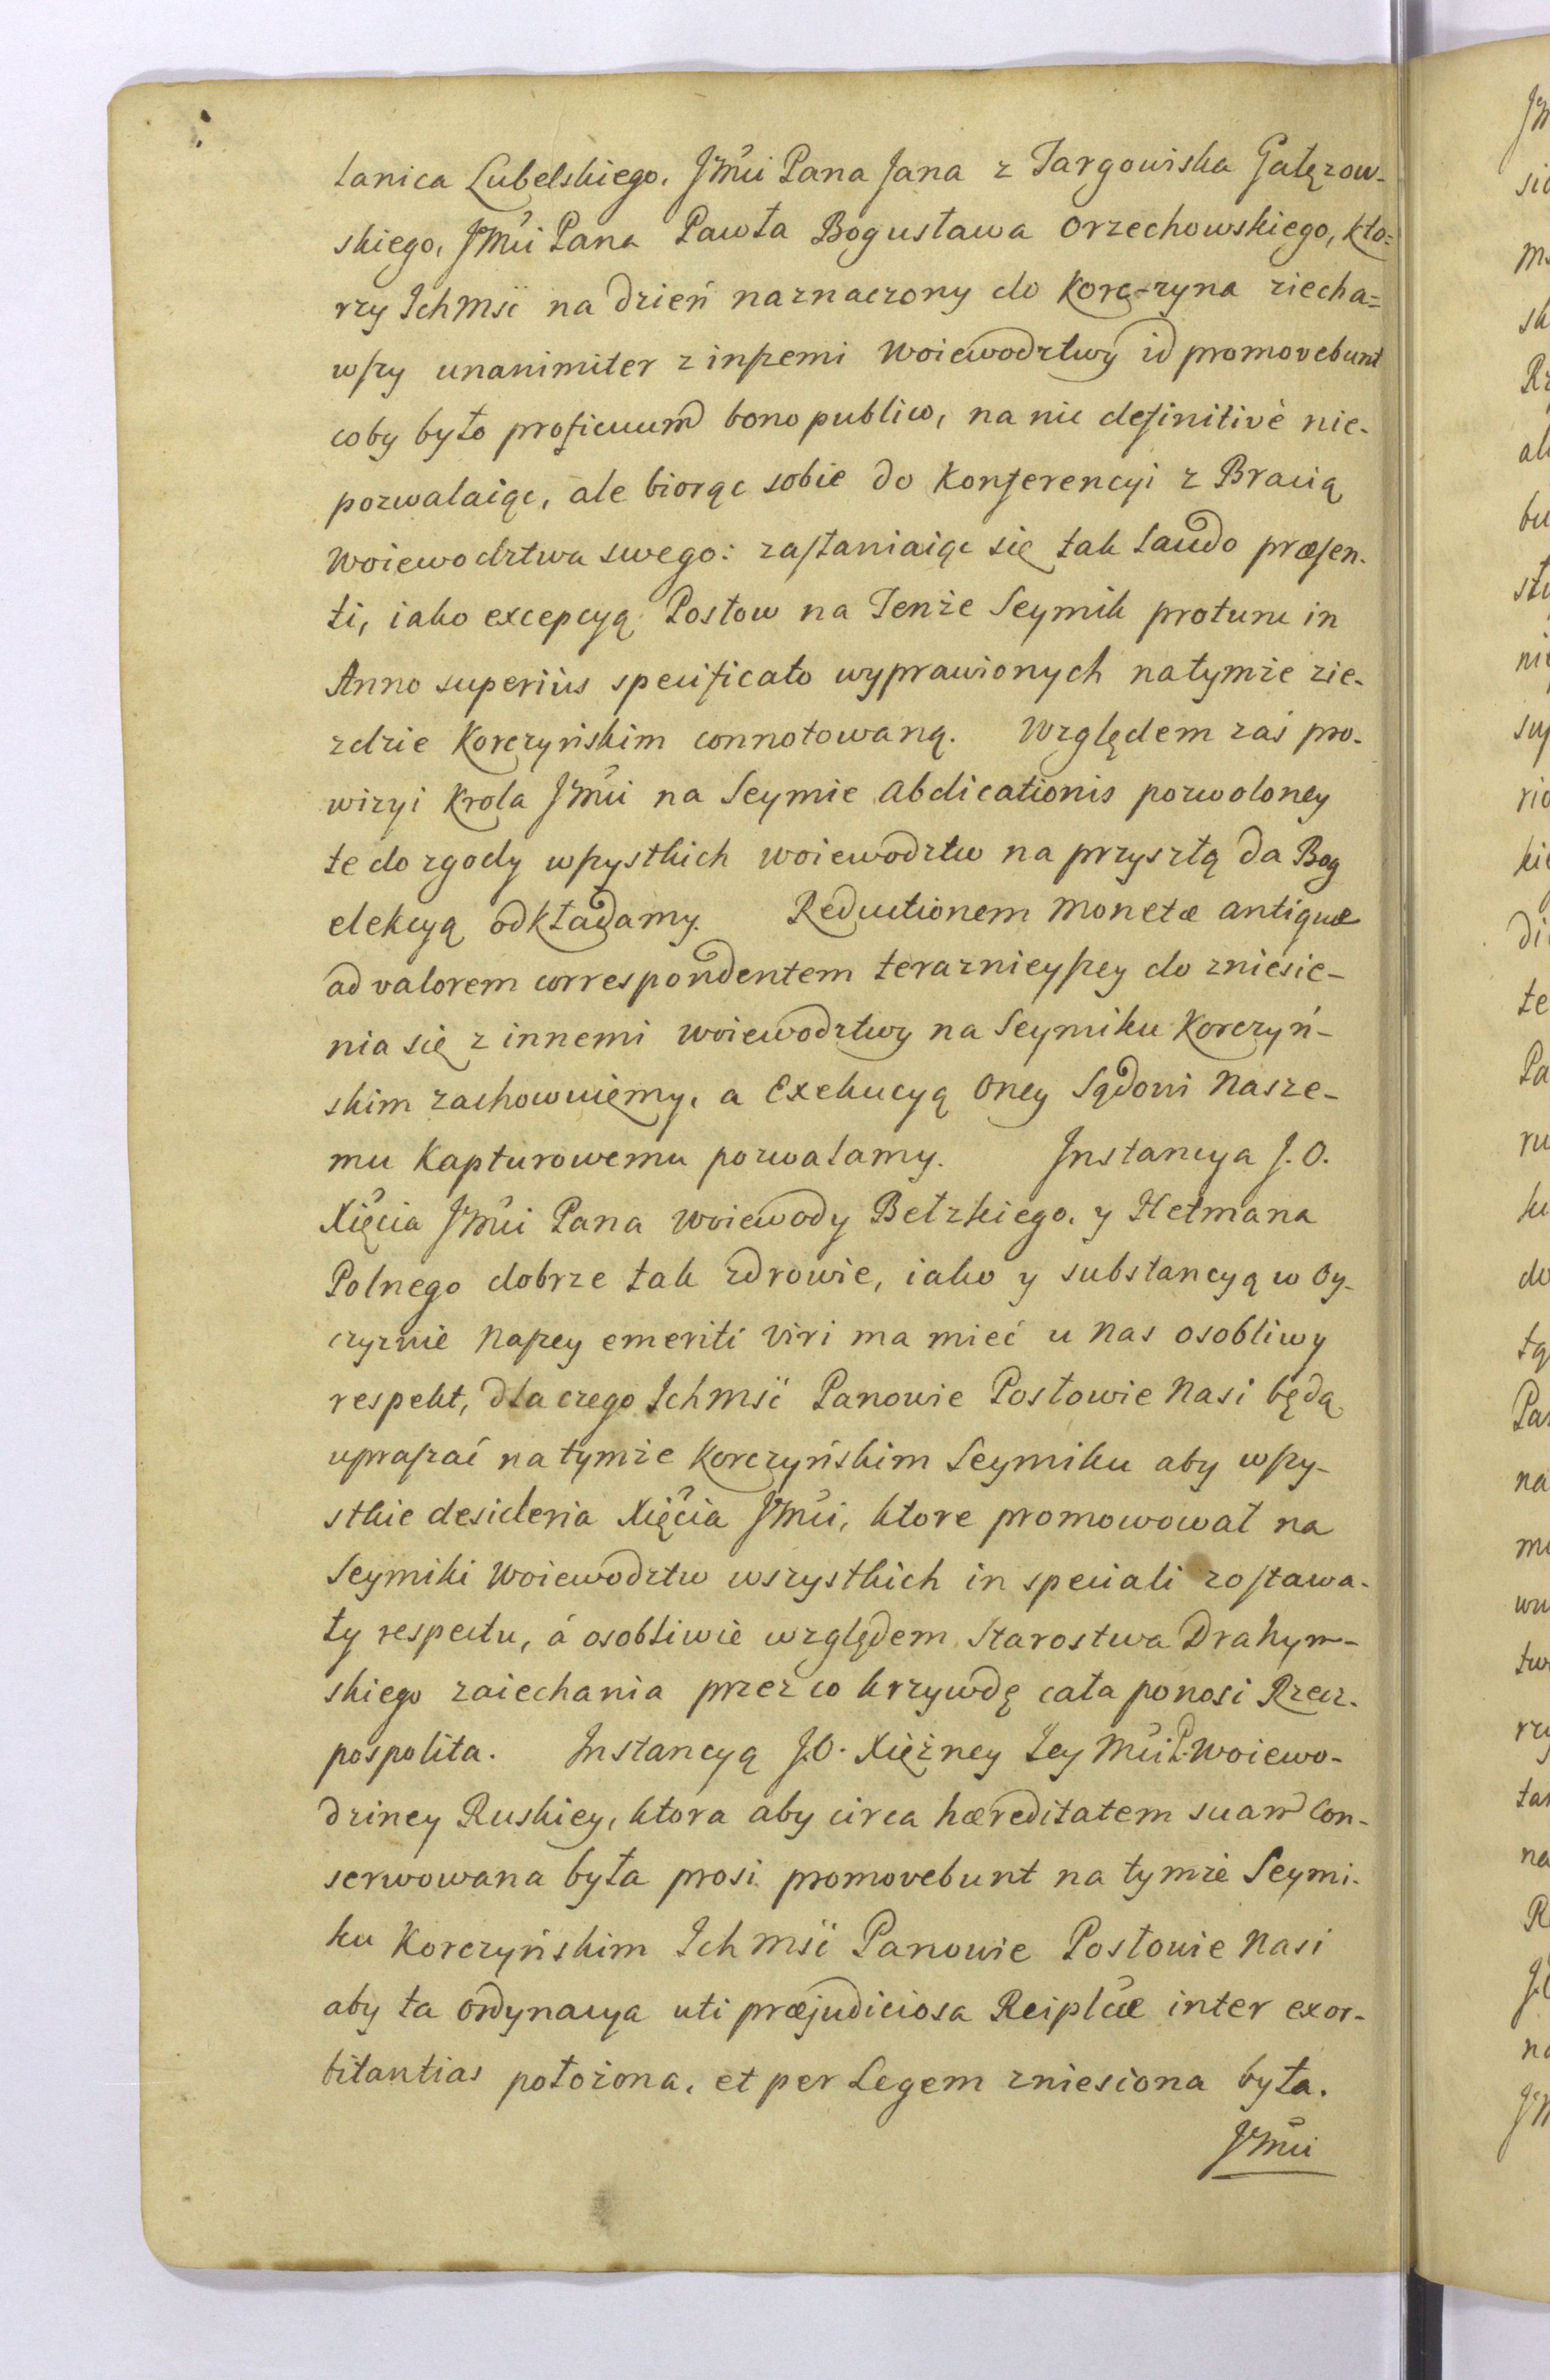 łanica Lubelskiego, JMći Pana Jana z Targowiska Gałęzow-
skiego, JMći Pana Pawła Bogusława Orzechowskiego, kto=
rzy Ichmść na dzień naznaczony do Korczyna ziecha=
wszy unanimiter z inszemi Woiewodztwy id promovebunt
coby było proficuum bono publico, na nic definitivè nie-
pozwalaiąc, ale biorąc sobie do Konferencyi z Bracią
Woiewodztwa swego: zastaniaiąc się tak Laudo præsen-
ti, iako excepcyą Posłow na Tenże Seymik protunc in
Anno superiùs specificato wyprawionych na tymże zie-
zdzie Korczyńskim connotowaną. Względem zaś pro-
wizyi Krola JMći na Seymie Abdicationis pozwoloney
te do zgody wszystkich woiewodztw na przyszłą da Bog
elekcyą odkładamy. Reductionem Monetæ antiquæ
ad valorem correspondentem teraznieyszey do zniesie-
nia się z innemi woiewodztwy na Seymiku Korczyń-
skim zachowuiemy, a Exekucyą Oney Sądowi Nasze-
mu Kapturowemu pozwalamy. Instancya J.O.
Xięcia JMći Pana Woiewody Bełzkiego, y Hetmana
Polnego dobrze tak zdrowie, iako y substancyą w Oy-
czyznie Naszey emeriti Viri ma mieć u Nas osobliwy
respekt, dla czego Ichmść Panowie Posłowie Nasi będą
upraszać na tymże Korczyńskim Seymiku aby wszy-
stkie desideria Xięcia JMći, ktore promowował na
Seymiki Woiewodztw wszystkich in speciali zostawa-
ły respectu, á osobliwie względem Starostwa Drahym-
skiego zaiechania przez co krzywdę cała ponosi Rzecz-
pospolita. Instancyą J.O. Xiężney Jey Mći P. Woiewo-
dziney Ruskiey, ktora aby circa hæreditatem suam Con-
serwowana była prosi promovebunt na tymże Seymi-
ku Korczyńskim Ichmść Panowie Posłowie Nasi
aby ta Ordynacya uti præjudiciosa Reiplcæ inter exor-
bitantias położona, et per Legem zniesiona była.
JMći